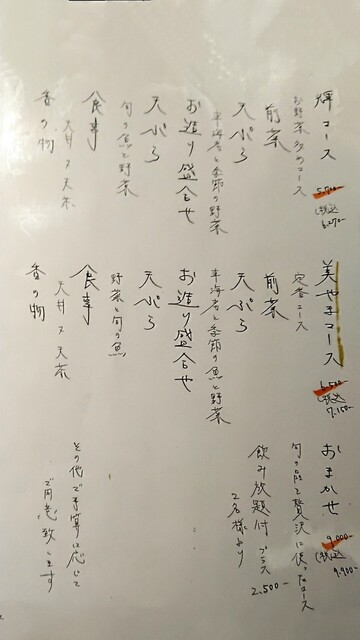 輝コース
5,700-
(税込
6,270-
お野菜多めコース
前菜
天ぷら
車海老と季節の野菜
お造り盛合せ
天ぷら
旬の魚と野菜
食事
天丼又天茶
香の物
美やまコース
6,500-
(税込
7,150-
定番コース
前菜
天ぷら
車海老と季節の魚と野菜
お造り盛合せ
天ぷら
野菜と旬の魚
食事
天丼又天茶
香の物
おまかせ
9,000-
(税込
9,900-
旬の品を贅沢に使ったコース
飲み放題付 プラス 2,500-
2名様より
その他ご予算に応じて
ご用意致します